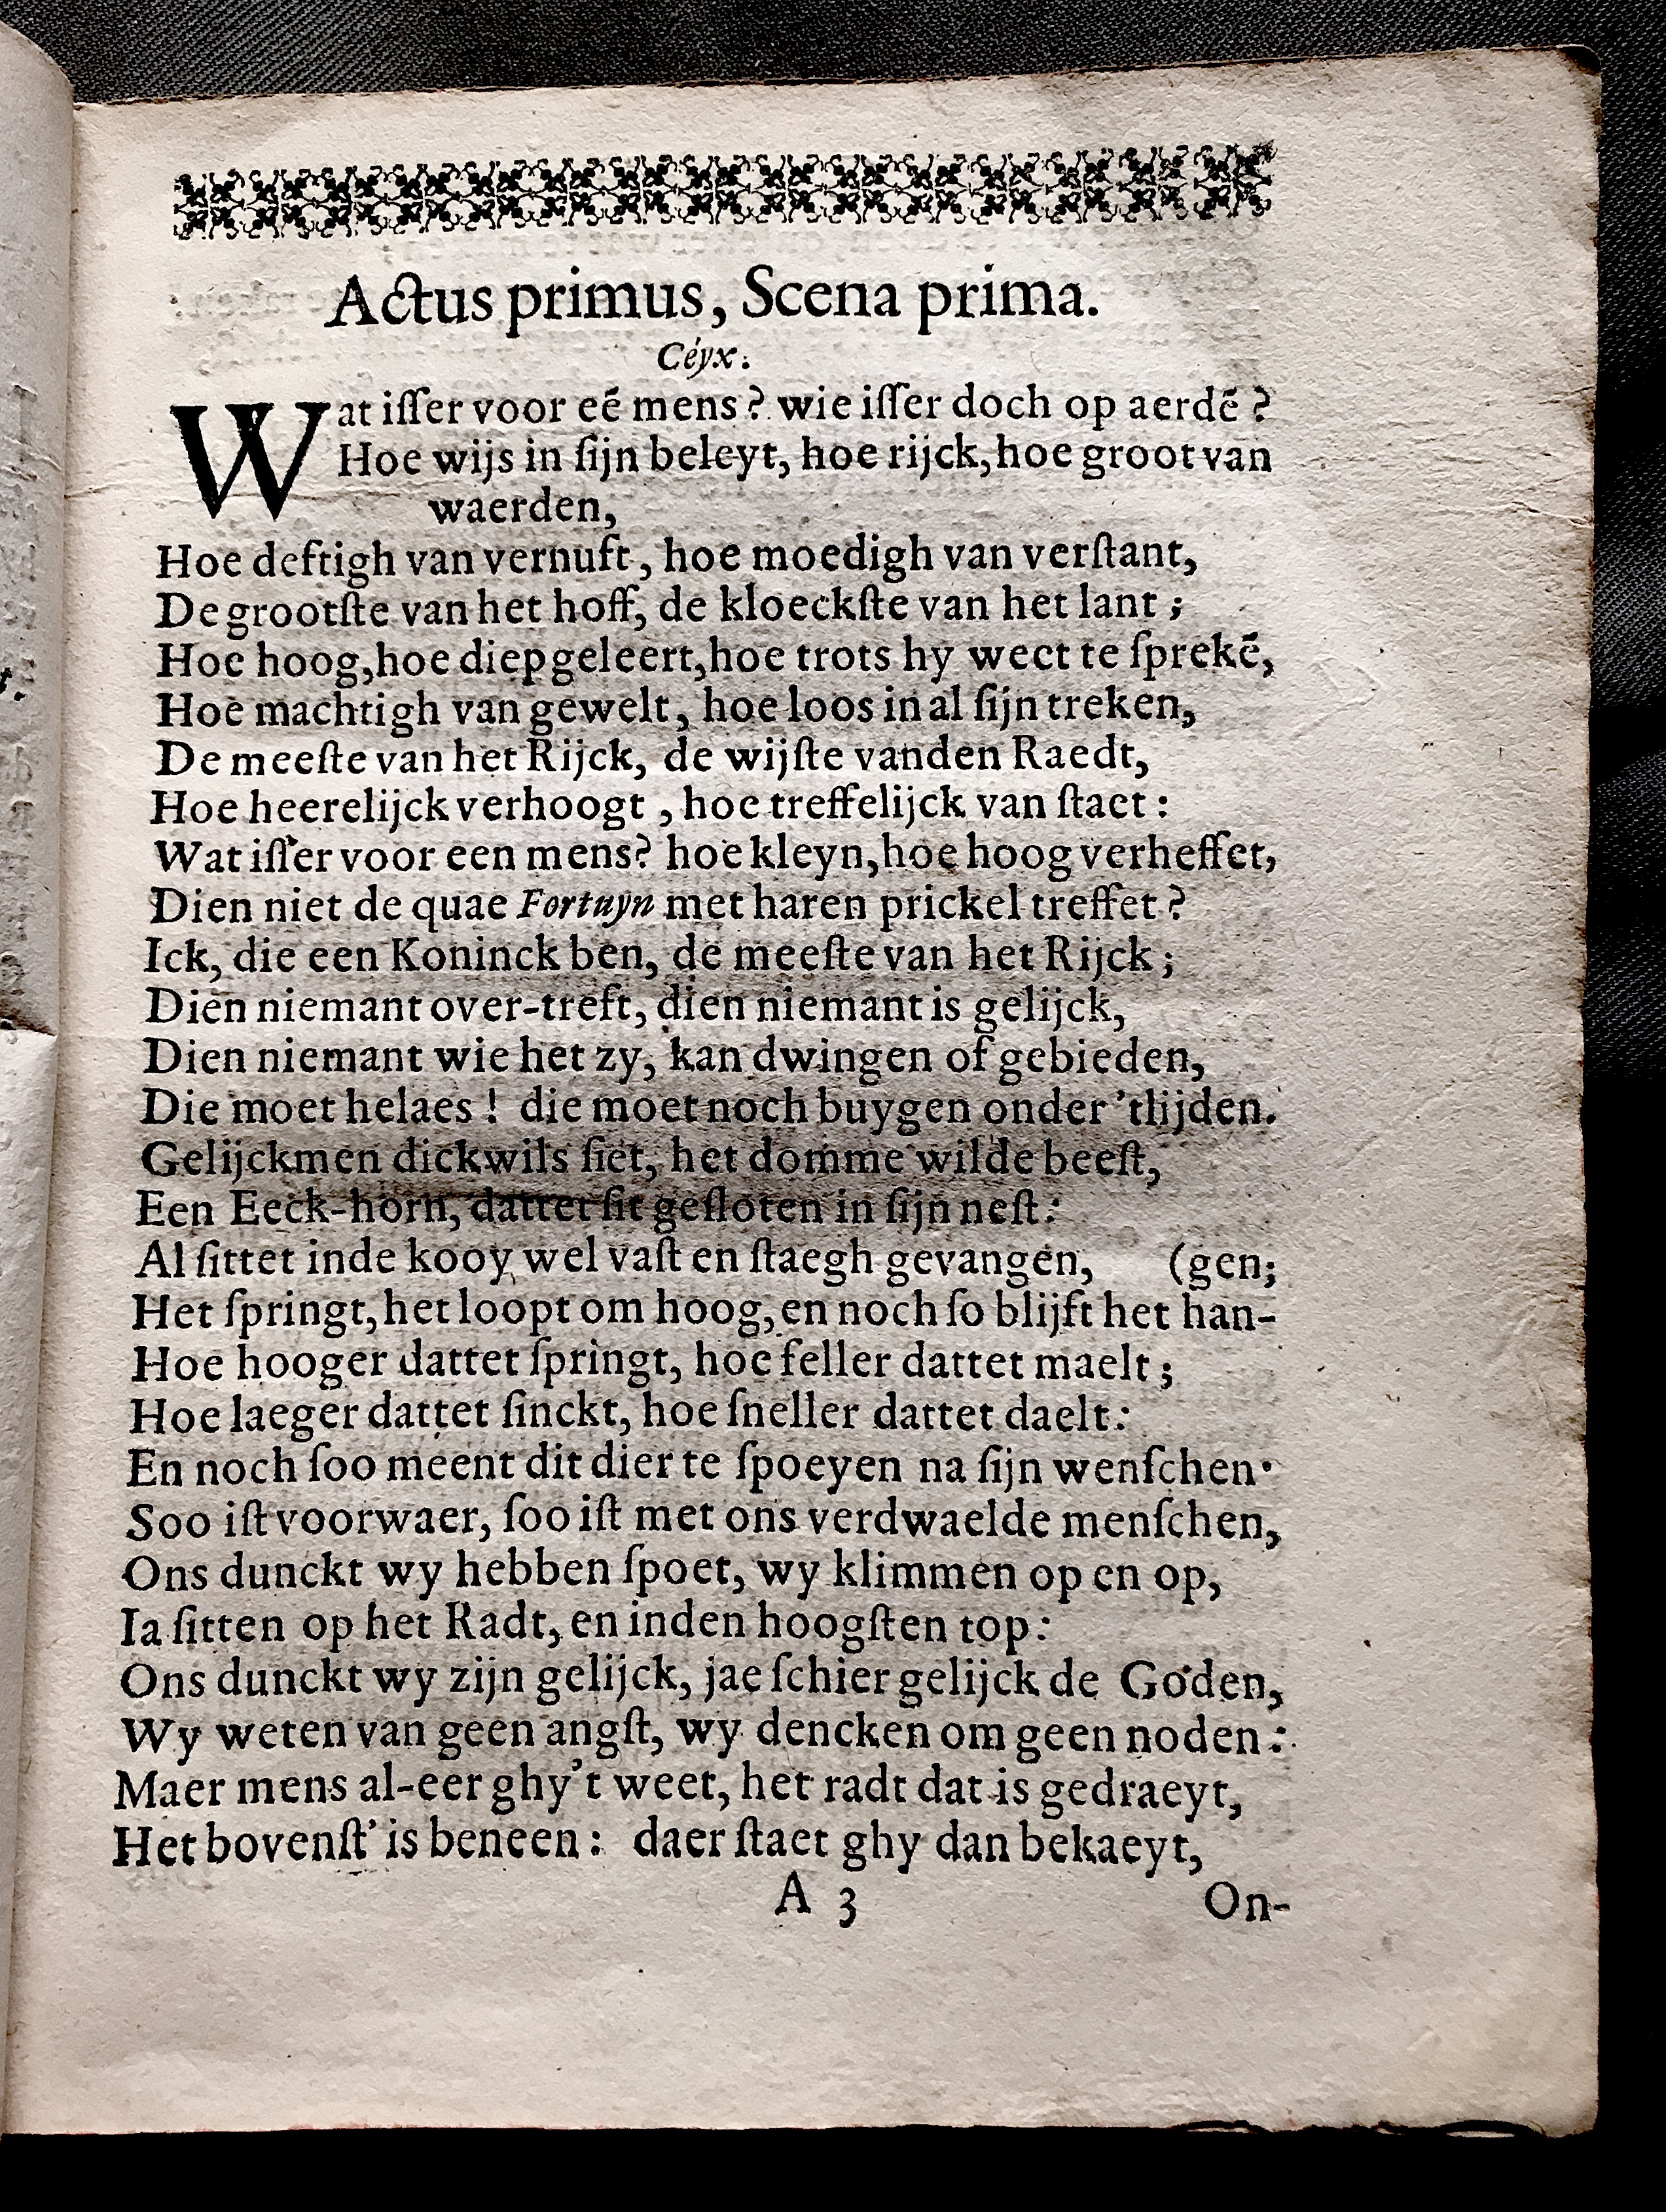 Actus primus, Scena prima.
Céyx.
Wat iſſer voor eē mens? wie iſſer doch op aerdē?
Hoe wijs in ſijn beleyt, hoe rijck, hoe groot van
waerden,
Hoe deftigh van vernuft, hoe moedigh van verſtant,
De grootſte van het hoff, de kloeckſte van het lant;
Hoe hoog, hoe diep geleert, hoe trots hy weet te ſprekē,
Hoe machtigh van gewelt, hoe loos in al ſijn treken,
De meeſte van het Rijck, de wijſte vanden Raedt,
Hoe heerelijck verhoogt, hoe treffelijck van ſtaet:
Wat iſſer voor een mens? hoe kleyn, hoe hoog verheffet,
Dien niet de quae Fortuyn met haren prickel treffet?
Ick, die een Koninck ben, de meeſte van het Rijck;
Dien niemant over-treft, dien niemant is gelijck,
Dien niemant wie het zy, kan dwingen of gebieden,
Die moet helaes! die moet noch buygen onder 'tlijden.
Gelijckmen dickwils ſiet, het domme wilde beeſt,
Een Eeck-horn, dattet ſit geſloten in ſijn neſt:
Al ſittet inde kooy wel vaſt en ſtaegh gevangen, (gen;
Het ſpringt, het loopt om hoog, en noch ſo blijft het han-
Hoe hooger dattet ſpringt, hoe feller dattet maelt;
Hoe laeger dattet ſinckt, hoe ſneller dattet daelt:
En noch ſoo meent dit dier te ſpoeyen na ſijn wenſchen·
Soo iſt voorwaer, ſoo iſt met ons verdwaelde menſchen,
Ons dunckt wy hebben ſpoet, wy klimmen op en op,
Ia ſitten op het Radt, en inden hoogſten top:
Ons dunckt wy zijn gelijck, jae ſchier gelijck de Goden,
Wy weten van geen angſt, wy dencken om geen noden:
Maer mens al-eer ghy't weet, het radt dat is gedraeyt,
Het bovenſt' is beneen: daer ſtaet ghy dan bekaeyt,
A 3 On-